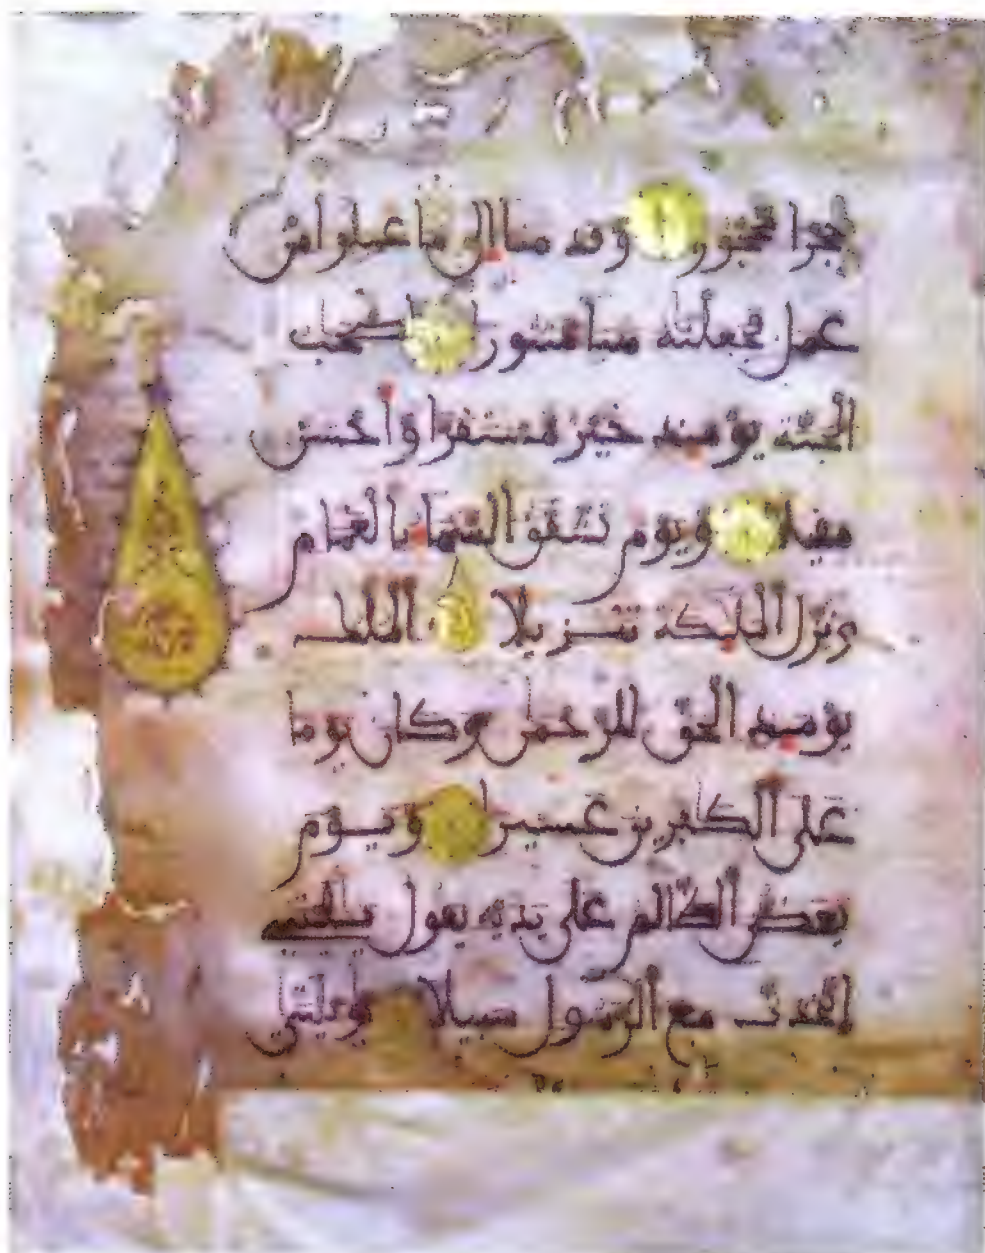 حجرا محجورا وقدمنا إلى ما عملوا من
عمل فجعلنه هباء منثورا أصحب
الجنة يومئذ خير مستقرا وأحسن
مقيلا ويوم تشقق السماء بالغمام
ونزل المليكة تنزيلا الملك
يومئذ الحق للرحمن وكان يوما
على الكفرين عسيرا ويوم
يعض الظالم على يديه يقول يليتني
اتخذت مع الرسول سبيلا يويلتى